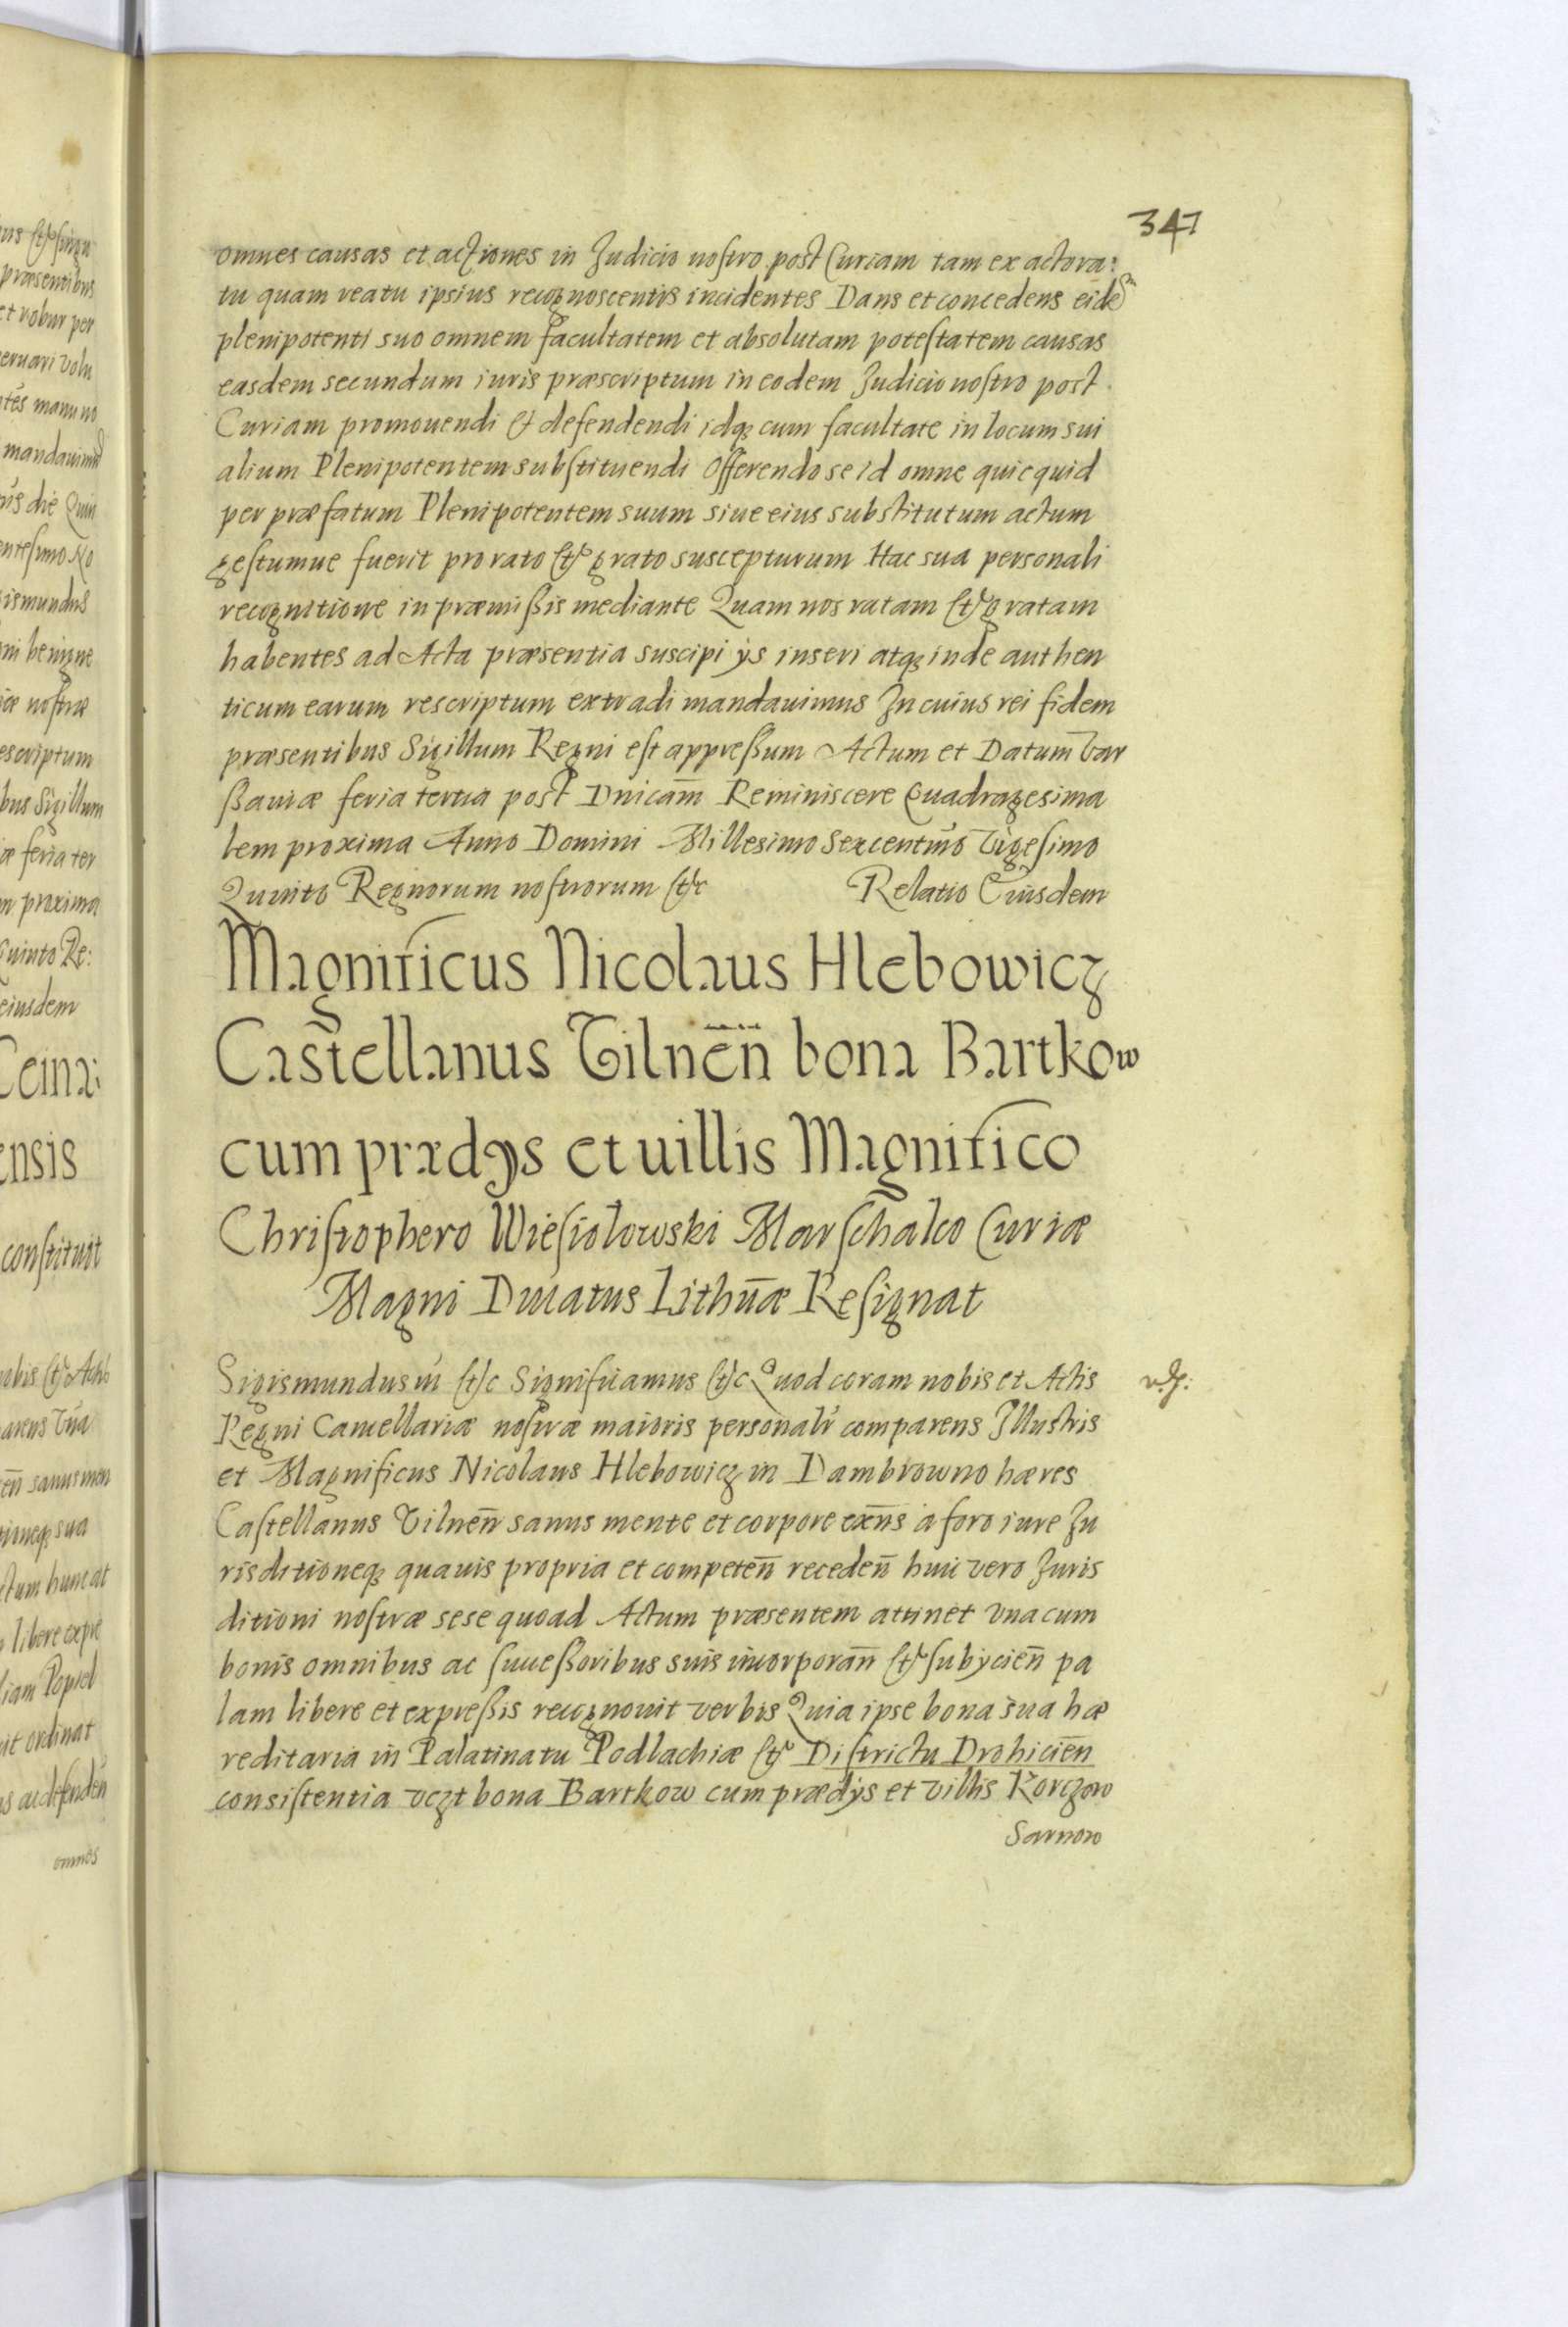 347
omnes causas et actiones in Judicio nostro post Curiam tam ex actora:
tu quam reatu ipsius recognoscentis incidentes Dans et concedens eidem
plenipotenti suo omnem facultatem et absolutam potestatem causas
easdem secundum iuris præscriptum in eodem Judicio nostro post
Curiam promouendi & defendendi idq cum facultate in locum sui
alium Plenipotentem substituendi Offerendo se id omne quicquid
per præfatum Plenipotentem suum siue eius substitutum actum
gestumue fuerit pro rato et grato suscepturum Hac sua personali
recognitione in præmißis mediante Quam nos ratam et gratam
habentes ad Acta præsentia suscipi ijs inseri atq inde authen
ticum earum rescriptum extradi mandauimus In cuius rei fidem
præsentibus Sigillum Regni est appreßum Actum et Datum Var
ßauiæ feria tertia post Dnicam̄ Reminiscere Quadragesima
lem proxima Anno Domini Millesimo Sexcentmo Vigesimo
Quinto Regnorum nostrorum etc Relatio Eiusdem
Magnificus Nicolaus Hlebowicz
Castellanus Vilnen̄ bona Bartkow
cum prædijs et uillis Magnifico
Christophero Wiesiolowski Marschalco Curiæ
Magni Ducatus Lithūæ Resignat
Sigismundus iii etc Significamus etc Quod coram nobis et Actis
Regni Cancellariæ nostræ maioris personalr comparens Illustris
et Magnificus Nicolaus Hlebowicz in Dambrowno hæres
Castellanus Vilnen̄ sanus mente et corpore exn̄s à foro iure Ju
risditioneq quauis propria et competen̄ receden̄ huic vero Juris
ditioni nostræ sese quoad Actum præsentem attinet vna cum
bonis omnibus ac succeßoribus suis incorporan̄ et subijcien̄ pa
lam libere et expreßis recognouit verbis Quia ipse bona sua hæ
reditaria in Palatinatu Podlachiæ et Districtu Drohicien̄
consistentia vczt bona Bartkow cum prædijs et villis Korczow
Sarnow